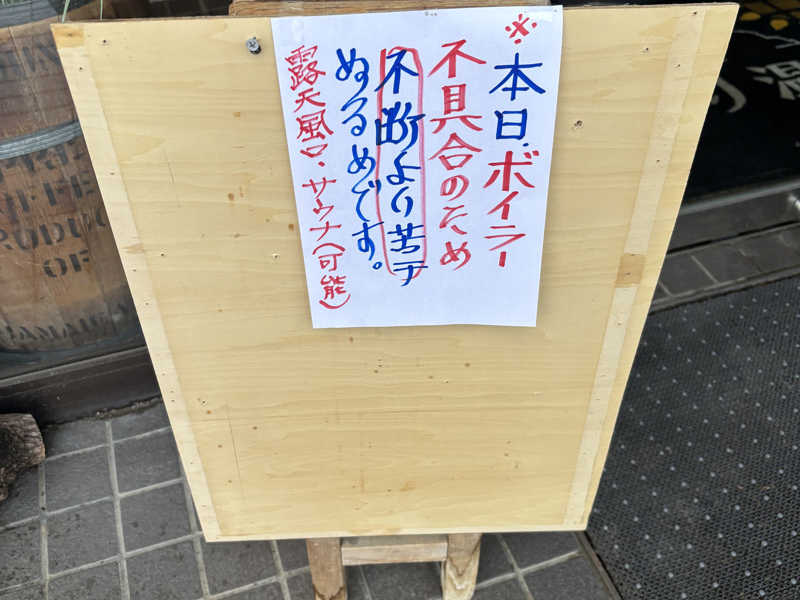 ※本日、ボイラー
不具合のため
不断より若干
ぬるめです。
露天風口、サウナ(可能)
OF